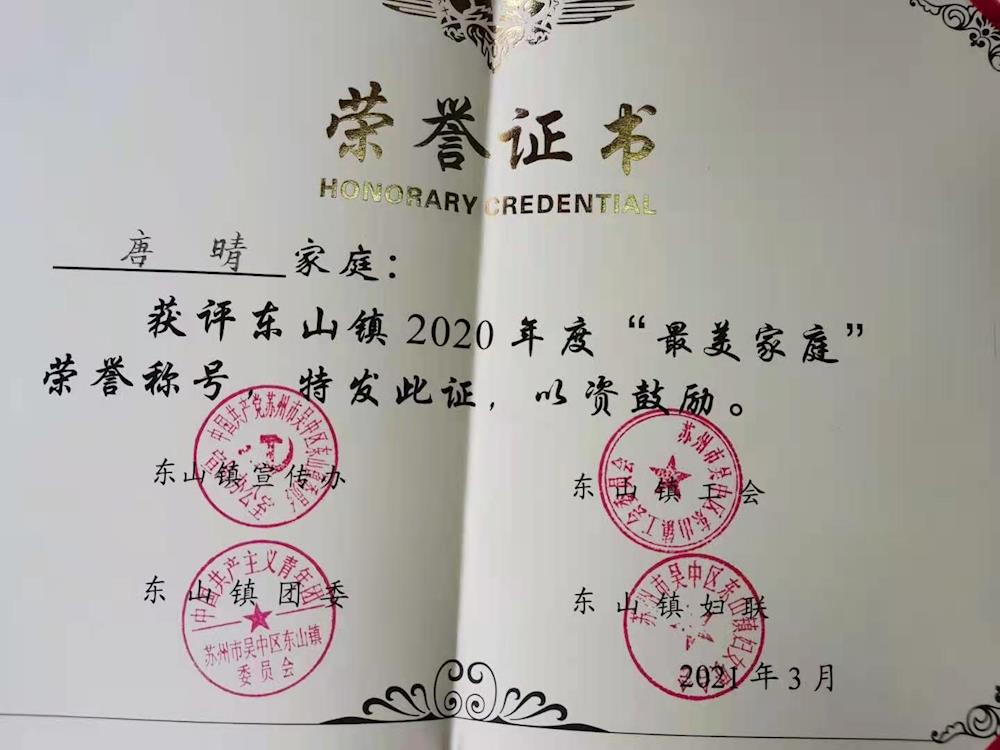 荣誉证书
HONORARY CREDENTIAL
唐 晴 家庭：
获评东山镇 2020 年度“最美家庭”
荣誉称号，特发此证，以资鼓励。
东山镇宣传办
东山镇工会
中国共产党苏州市吴中区东山镇委员会
宣传办公室
苏州市吴中区东山镇工会委员会
东山镇团委
东山镇妇联
中国共产主义青年团
苏州市吴中区东山镇
委员会
苏州市吴中区东山镇妇女
2021 年 3 月